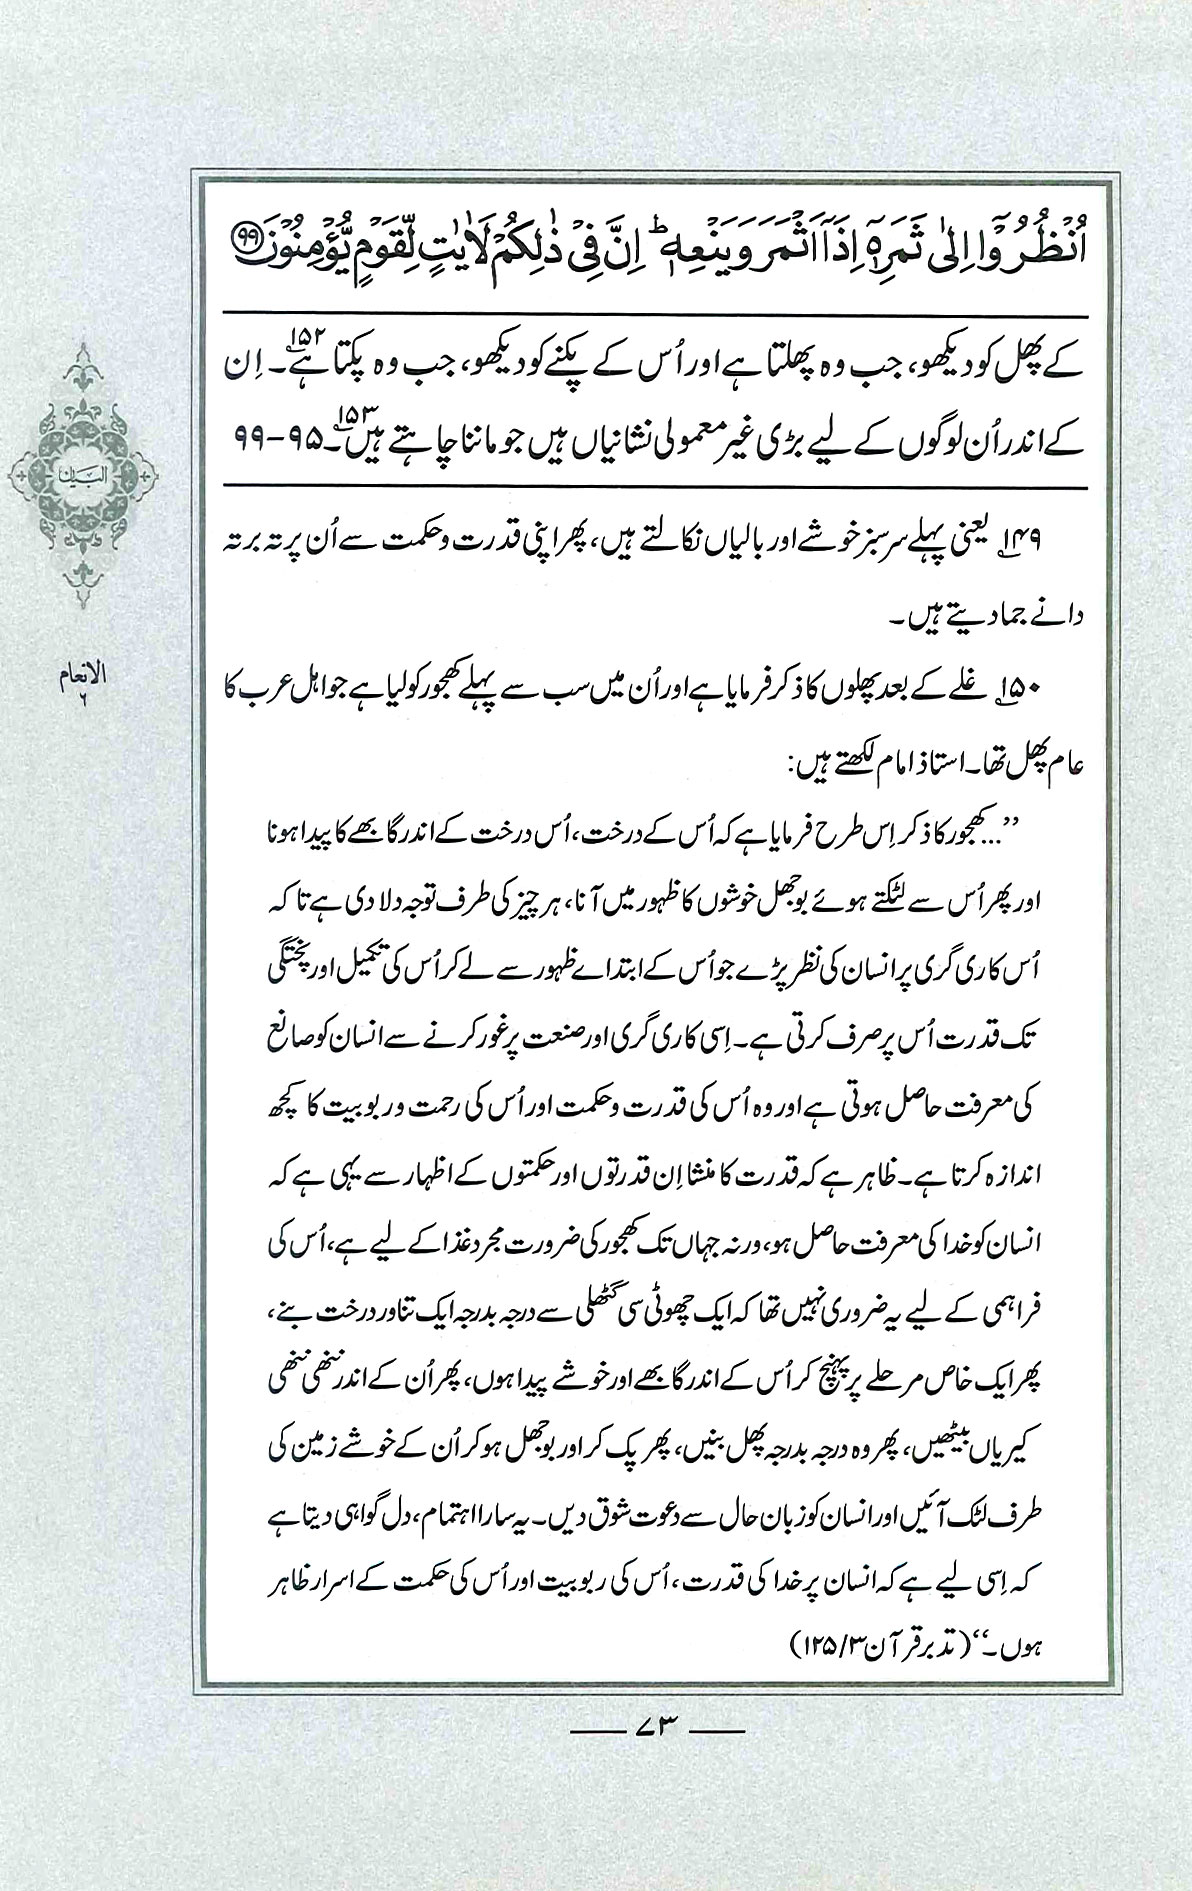 اُنْظُرُوْٓا اِلٰى ثَمَرِهٖٓ اِذَآ اَثْمَرَ وَيَنْعِهٖ ؕ اِنَّ فِيْ ذٰلِكُمْ لَاٰيٰتٍ لِّقَوْمٍ يُّؤْمِنُوْنَ ﴿۹۹﴾
کے پھل کو دیکھو، جب وہ پھلتا ہے اور اُس کے پکنے کو دیکھو، جب وہ پکتا ہے۱۵۲۔ اِن
کے اندر اُن لوگوں کے لیے بڑی غیر معمولی نشانیاں ہیں جو ماننا چاہتے ہیں۱۵۳۔ ۹۵-۹۹
۱۴۹؎ یعنی پہلے سرسبز خوشے اور بالیاں نکالتے ہیں، پھر اپنی قدرت و حکمت سے اُن پر تہ بر تہ
دانے جما دیتے ہیں۔
۱۵۰؎ غلے کے بعد پھلوں کا ذکر فرمایا ہے اور اُن میں سب سے پہلے کھجور کو لیا ہے جو اہل عرب کا
عام پھل تھا۔ استاذ امام لکھتے ہیں:
’’...کھجور کا ذکر اِس طرح فرمایا ہے کہ اُس کے درخت، اُس درخت کے اندر گابھے کا پیدا ہونا
اور پھر اُس سے لٹکتے ہوئے بوجھل خوشوں کا ظہور میں آنا، ہر چیز کی طرف توجہ دلا دی ہے تاکہ
اُس کاری گری پر انسان کی نظر پڑے جو اُس کے ابتداے ظہور سے لے کر اُس کی تکمیل اور پختگی
تک قدرت اُس پر صرف کرتی ہے۔ اِسی کاری گری اور صنعت پر غور کرنے سے انسان کو صانع
کی معرفت حاصل ہوتی ہے اور وہ اُس کی قدرت و حکمت اور اُس کی رحمت و ربوبیت کا کچھ
اندازہ کرتا ہے۔ ظاہر ہے کہ قدرت کا منشا اِن قدرتوں اور حکمتوں کے اظہار سے یہی ہے کہ
انسان کو خدا کی معرفت حاصل ہو، ورنہ جہاں تک کھجور کی ضرورت مجرد غذا کے لیے ہے، اُس کی
فراہمی کے لیے یہ ضروری نہیں تھا کہ ایک چھوٹی سی گٹھلی سے درجہ بدرجہ ایک تناور درخت بنے،
پھر ایک خاص مرحلے پر پہنچ کر اُس کے اندر گابھے اور خوشے پیدا ہوں، پھر اُن کے اندر ننھی ننھی
کیریاں بیٹھیں، پھر وہ درجہ بدرجہ پھل بنیں، پھر پک کر اور بوجھل ہو کر اُن کے خوشے زمین کی
طرف لٹک آئیں اور انسان کو زبان حال سے دعوت شوق دیں۔ یہ سارا اہتمام، دل گواہی دیتا ہے
کہ اِسی لیے ہے کہ انسان پر خدا کی قدرت، اُس کی ربوبیت اور اُس کی حکمت کے اسرار ظاہر
ہوں۔‘‘ (تدبر قرآن ۳/۱۲۵)
البیان
الانعام
۶
۷۳